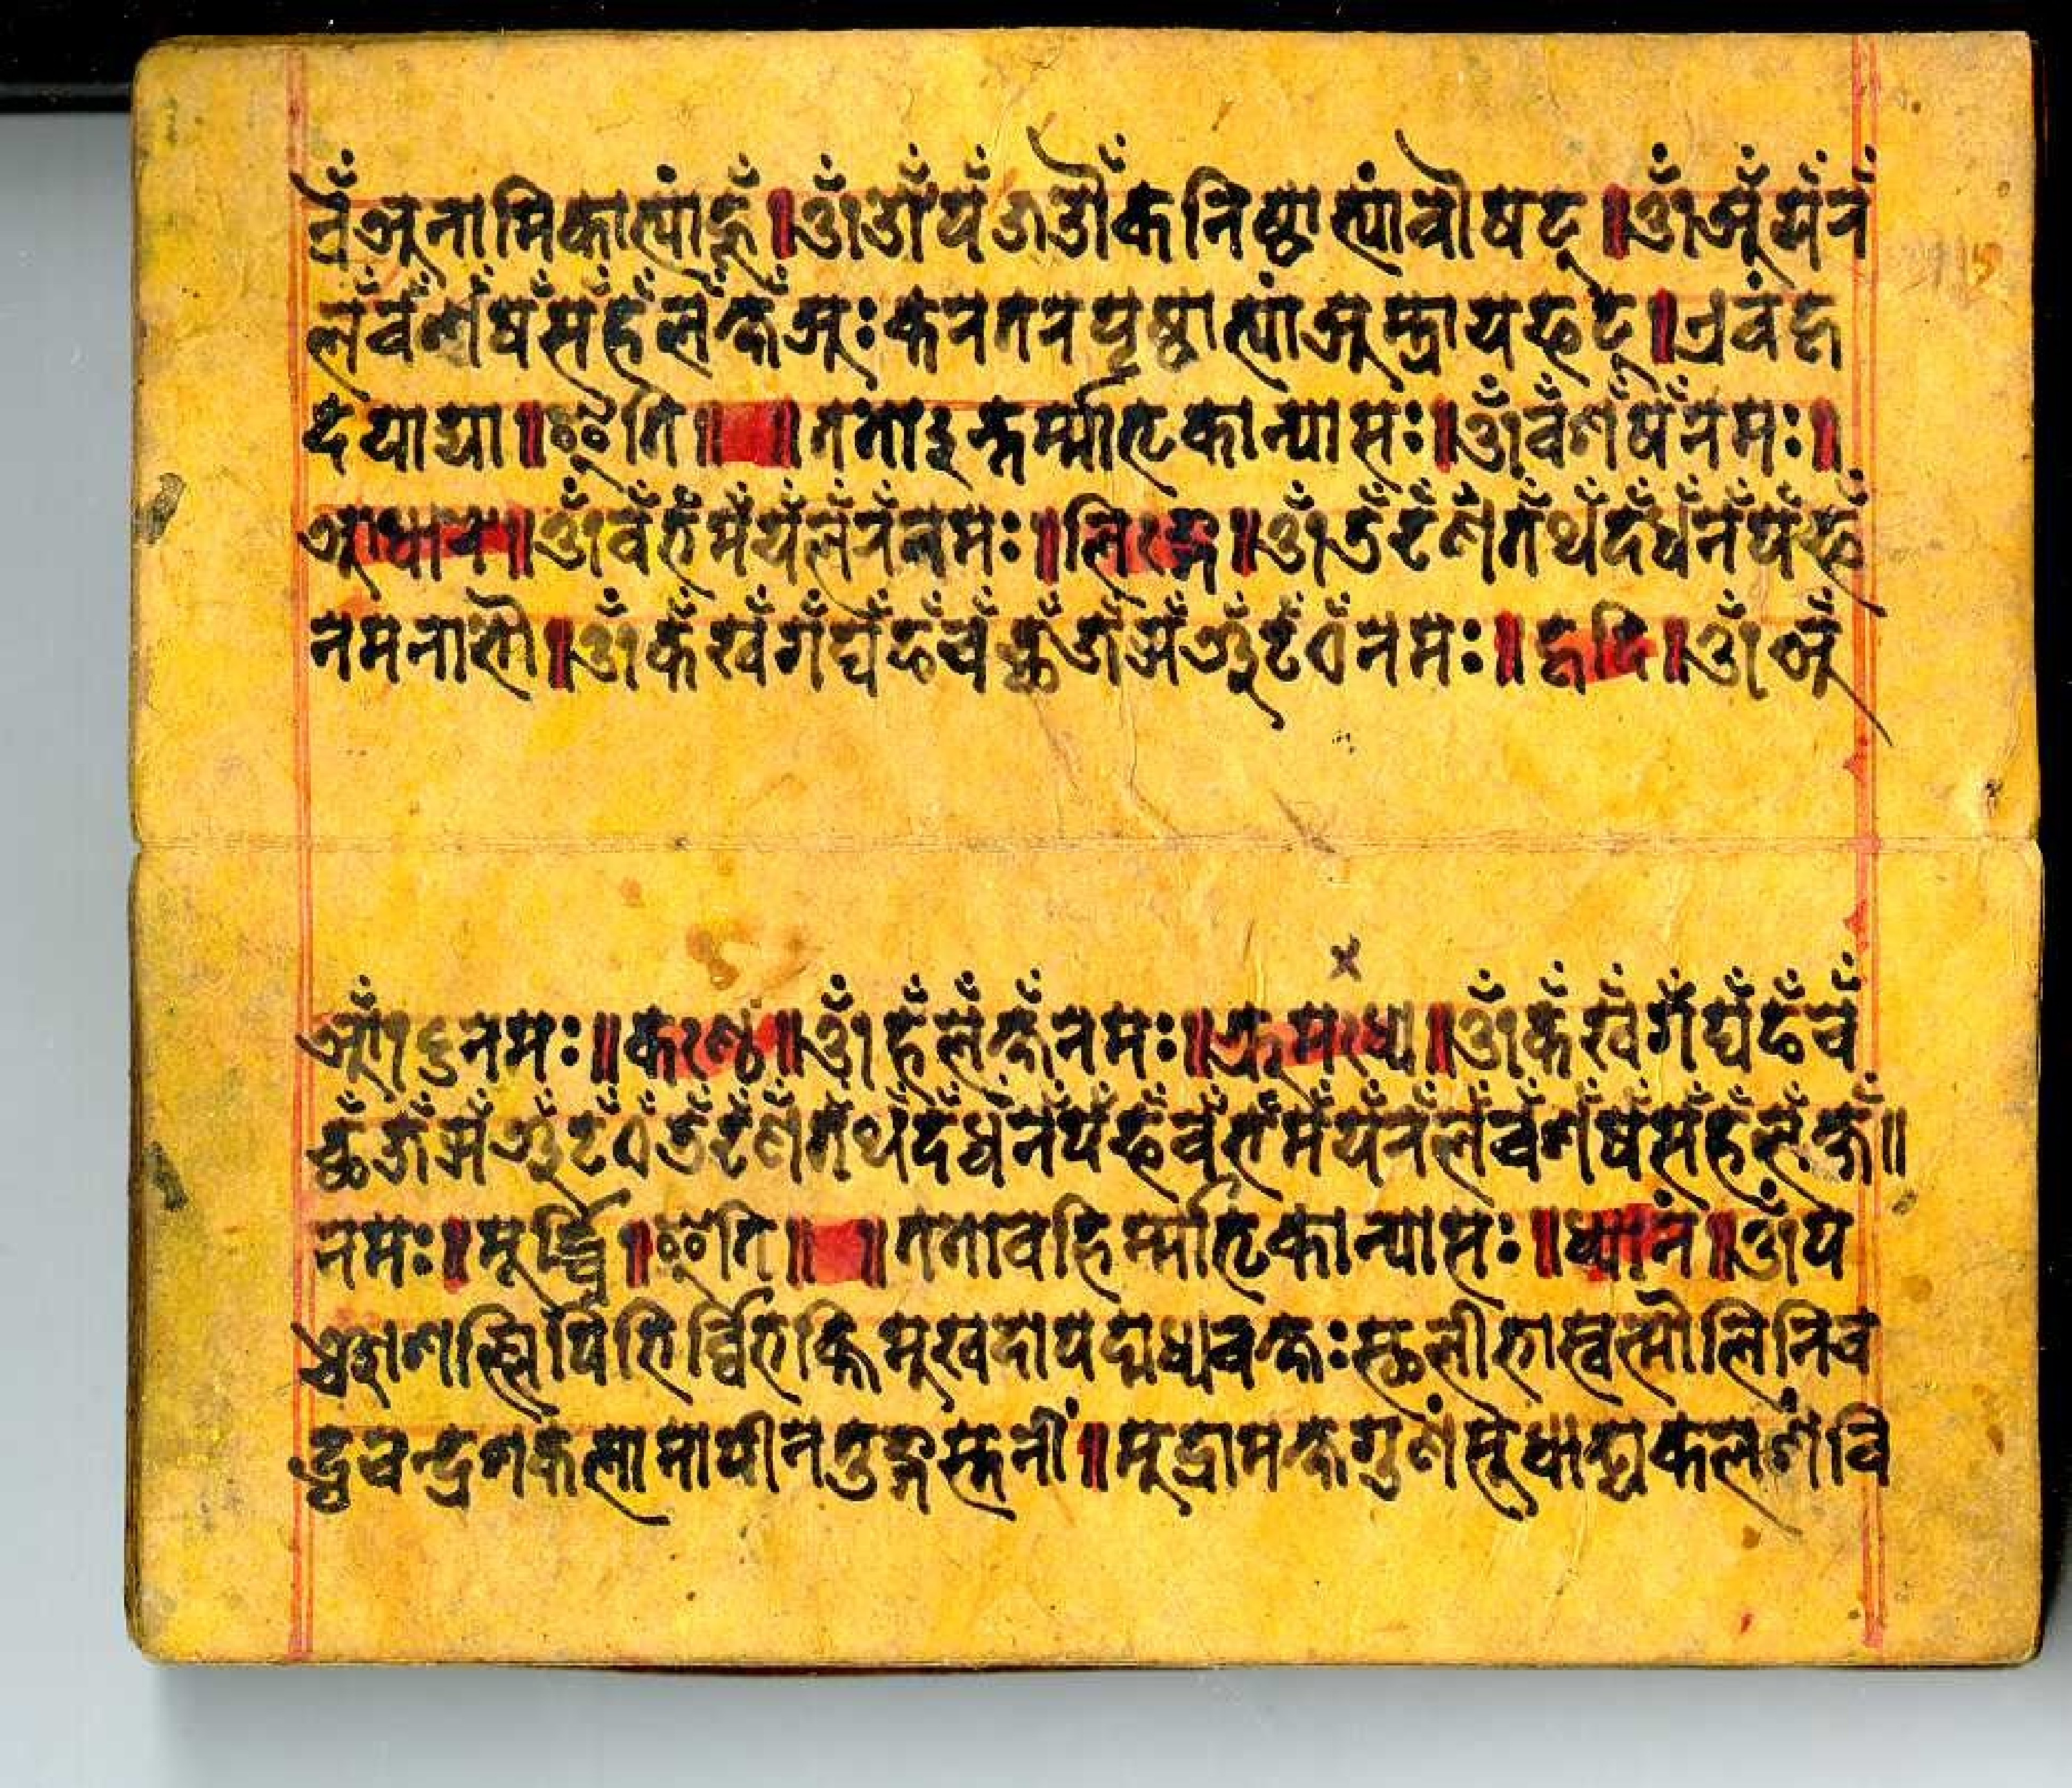 नँअनामिकाभ्यांहूँ॥ॐओँपँऔँकनिष्ठाभ्यांवौषट्॥ॐअँयँरँ
लँवँशँषँसँहँलँक्षँअः करतरपृष्ठाभ्यांअस्त्रायफट्॥एवंहृ
दयाद्या॥इति॥ ॥ततोइन्तर्म्मातृकान्यासः॥ॐवँशँषँनमः॥
आधार॥ॐवँभँमँयँलँरँनमः॥लिङ्ग॥ॐडँढँणँतँथँदँधँनँपँफँ
नमनाभौ॥ॐकँखँगँघँङँचँछँजँझँञँटँठँनमः॥हृदि॥ॐअँ
आँइनमः॥कण्ठ॥ॐहँलँक्षँनमः॥भ्रूमध्य॥ॐकँखँगँघँङँचँ
छँजँझँञँटँठँडँढँणँतँथँदँधँनँपँफँवँभँमँयँरँलँवँशँषँसँहँलँक्षँ॥
नमः॥मूर्द्ध्नि॥इति॥ ॥ततोवहिर्म्मातृकान्यासः॥ध्यानं॥ॐप
ञ्चाशल्लिपिभिर्व्विभक्तिमुखदोपन्मध्यवक्षःस्थलीभास्वन्मौलिनिव
द्धचन्द्रशकलामापीनतुङ्गस्तनीं॥मुद्रामक्षगुणंसुधाढ्यकलशंवि